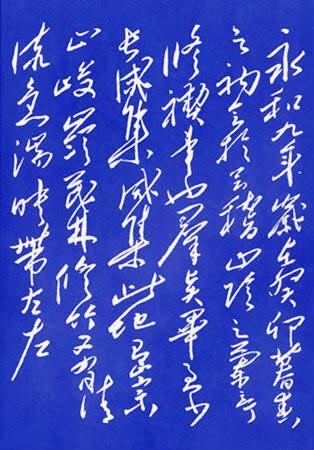 永和九年歲在癸卯暮春
之初会於会稽山陰之蘭亭
修禊事也群賢畢至少
長咸集咸集此地有崇
山峻嶺茂林修竹又有清
流急湍映帶左右